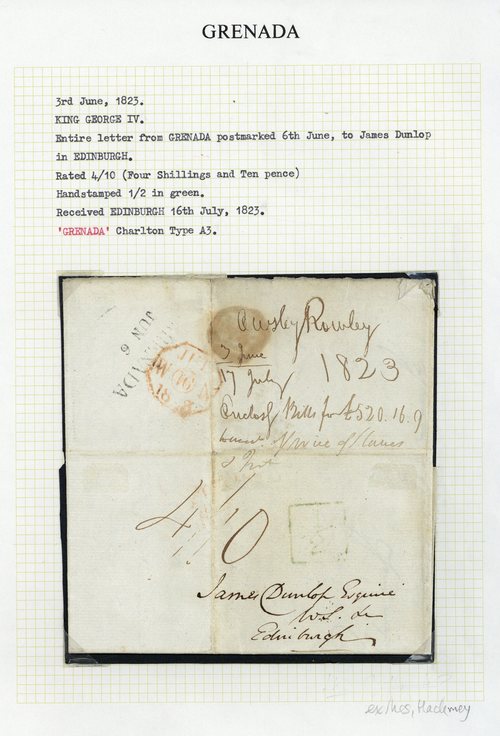 GRENADA
3rd June, 1823.
KING GEORGE IV.
Entire letter from GRENADA postmarked 6th June, to James Dunlop
in EDINBURGH.
Rated 4/10 (Four Shillings and Ten pence)
Handstamped 1/2 in green.
Received EDINBURGH 16th July, 1823.
'GRENADA' Charlton Type A3.
Owsley Rowley
3 June
17 July
1823
Enclosg Bills for £520.16.9
of price of Slaves
JUN 6
GRENADA
4/10
James Dunlop Esquire
W.S. &c
Edinburgh
ex Mrs, Hackmey